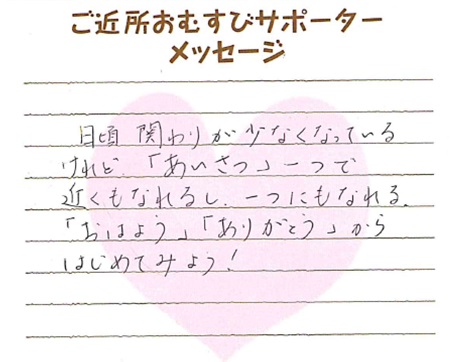 ご近所おむすびサポーター
メッセージ
日頃 関わりが少なくなっている
けれど、「あいさつ」一つで
近くもなれるし、一つにもなれる。
「おはよう」「ありがとう」から
はじめてみよう!